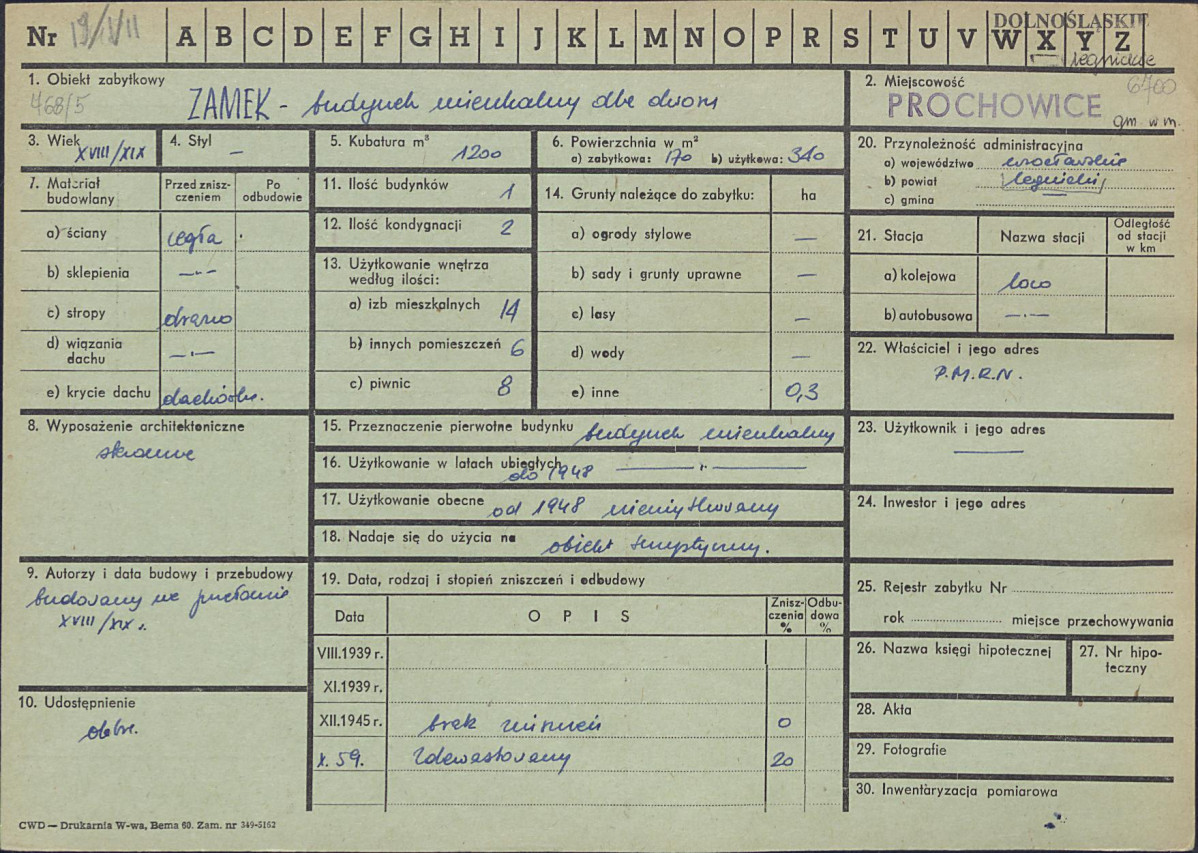 Nr 19/VII A B C D E F G H I J K L M N O P R S T U V W X Y Z
DOLNOŚLĄSKIE
legnickie
1. Obiekt zabytkowy
468/5
ZAMEK - budynek mieszkalny dla dworu
2. Miejscowość 6700
PROCHOWICE
gm. w m.
3. Wiek XVIII/XIX
4. Styl —
5. Kubatura m³ 1200
6. Powierzchnia w m²
a) zabytkowa: 170 b) użytkowa: 340
20. Przynależność administracyjna
a) województwo wrocławskie
b) powiat legnicki
c) gmina
7. Materiał budowlany
Przed zniszczeniem
Po odbudowie
a) ściany cegła
b) sklepienia —·—
c) stropy drzewo
d) wiązania dachu —·—
e) krycie dachu dachówka.
11. Ilość budynków 1
12. Ilość kondygnacji 2
13. Użytkowanie wnętrza według ilości:
a) izb mieszkalnych 14
b) innych pomieszczeń 6
c) piwnic 8
14. Grunty należące do zabytku: ha
a) ogrody stylowe —
b) sady i grunty uprawne —
c) lasy —
d) wody —
e) inne 0,3
21. Stacja
Nazwa stacji
Odległość od stacji w km
a) kolejowa loco
b) autobusowa —·—
22. Właściciel i jego adres
P.M.R.N.
8. Wyposażenie architektoniczne
skromne
15. Przeznaczenie pierwotne budynku budynek mieszkalny
16. Użytkowanie w latach ubiegłych do 1948 —·—
17. Użytkowanie obecne od 1948 nieużytkowany
18. Nadaje się do użycia na obiekt turystyczny.
23. Użytkownik i jego adres
—
24. Inwestor i jego adres
9. Autorzy i data budowy i przebudowy
budowany na przełomie
XVIII/XIX.
10. Udostępnienie
19. Data, rodzaj i stopień zniszczeń i odbudowy
Data
OPIS
Zniszczenia %
Odbudowa %
VIII.1939 r.
XI.1939 r.
XII.1945 r. brak zniszczeń 0
X. 59. Zdewastowany 20
25. Rejestr zabytku Nr
rok miejsce przechowywania
26. Nazwa księgi hipotecznej
27. Nr hipoteczny
28. Akta
29. Fotografie
30. Inwentaryzacja pomiarowa
CWD — Drukarnia W-wa, Bema 60. Zam. nr 349-5162